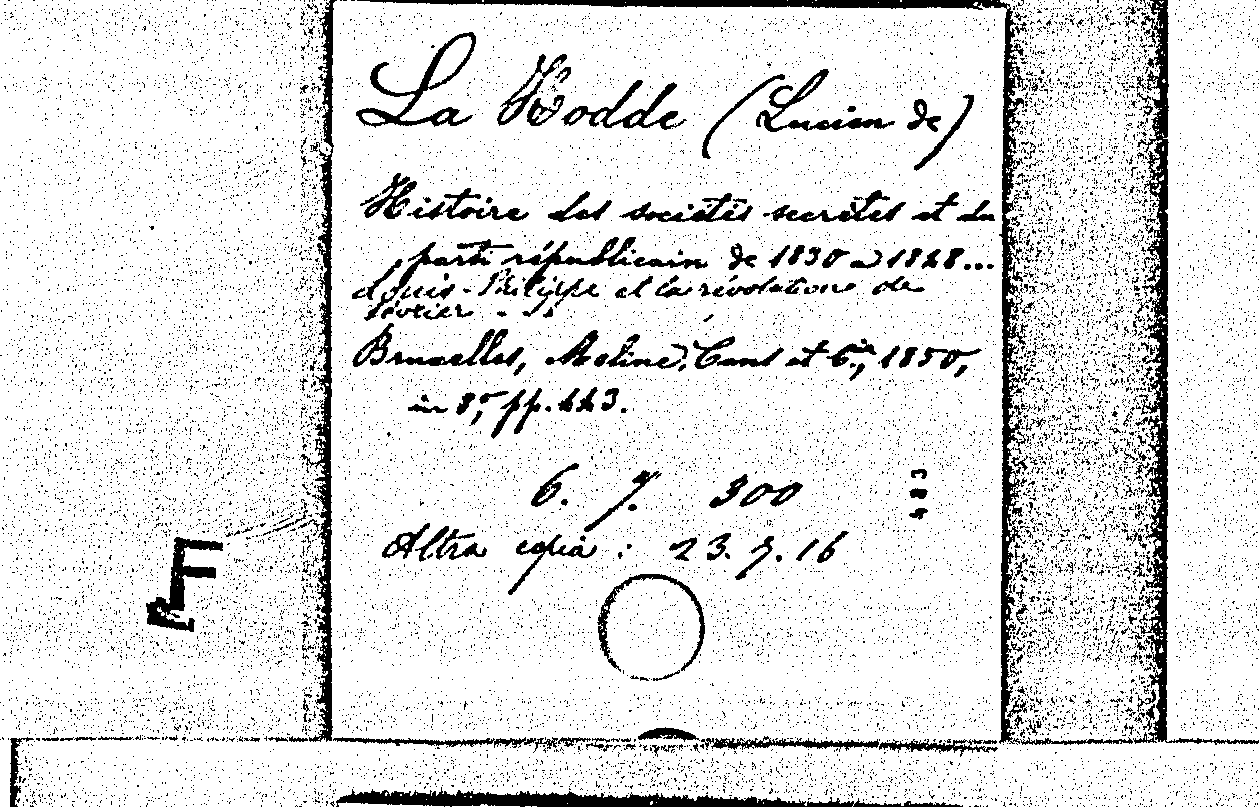 La Hodde (Lucien de)
Histoire des sociétés secrètes et du
parti républicain de 1830 a 1848...
Louis-Philippe et la révolution de
février ...
Bruxelles, Meline, Cans et C.ie, 1850,
in 8°, pp. 443.
6. 7. 300
Altra copia : 23. 7. 16
F